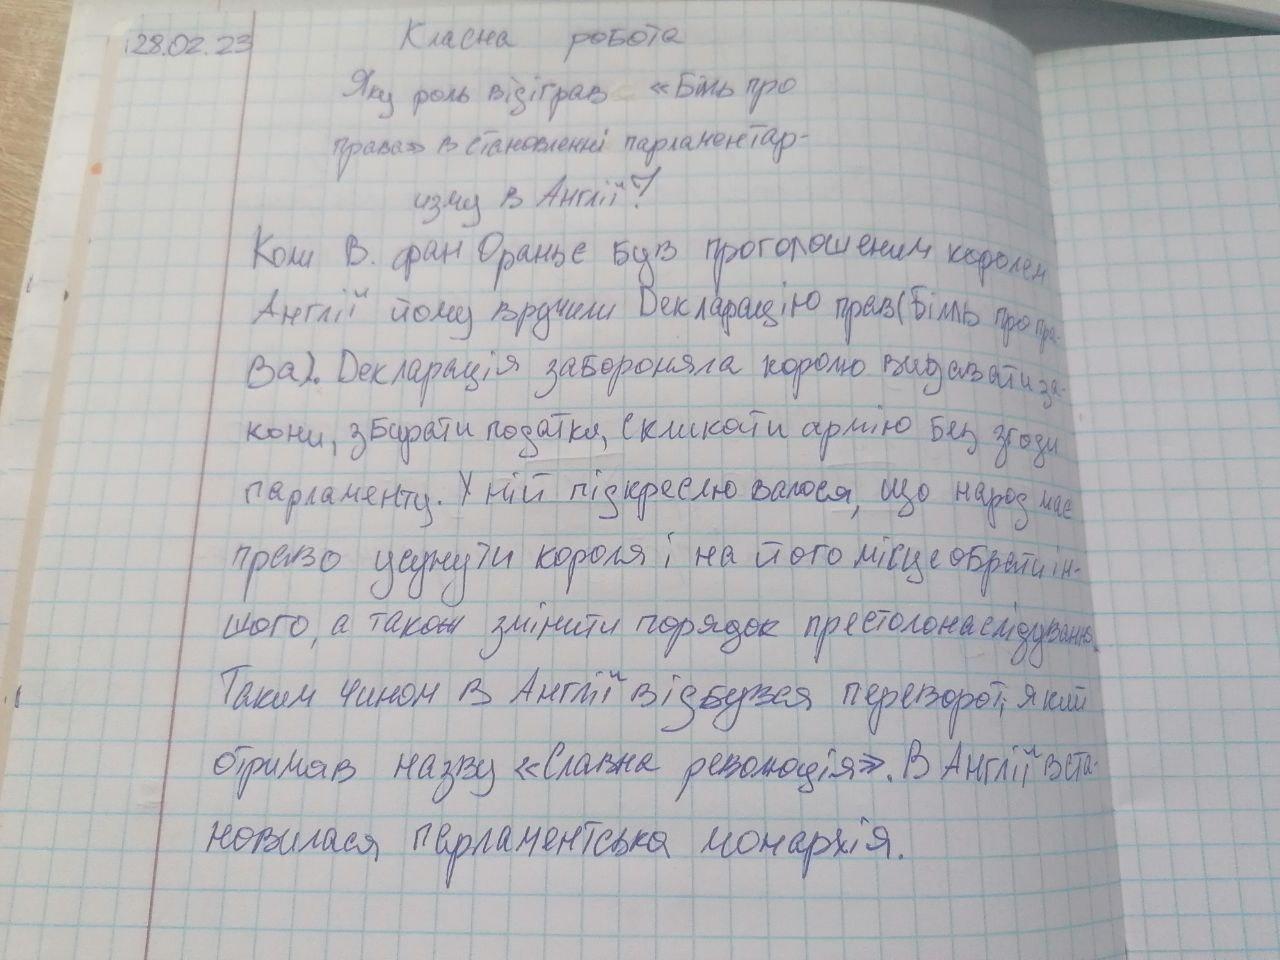 28.02.23 Класна робота
Яку роль відіграв «Білль про
права» в становленні парламентар-
изму в Англії?
Коли В. фан Ораньє був проголошеним королем
Англії йому вручили Декларацію прав (Білль про пра-
ва). Декларація забороняла королю видавати за-
кони, збирати податки, скликати армію без згоди
парламенту. У ній підкреслювалося, що народ має
право усунути короля і на його місце обрати ін-
шого, а також змінити порядок престолонаслідування.
Таким чином в Англії відбувся переворот, який
отримав назву «Славна революція». В Англії вста-
новилася парламентська монархія.